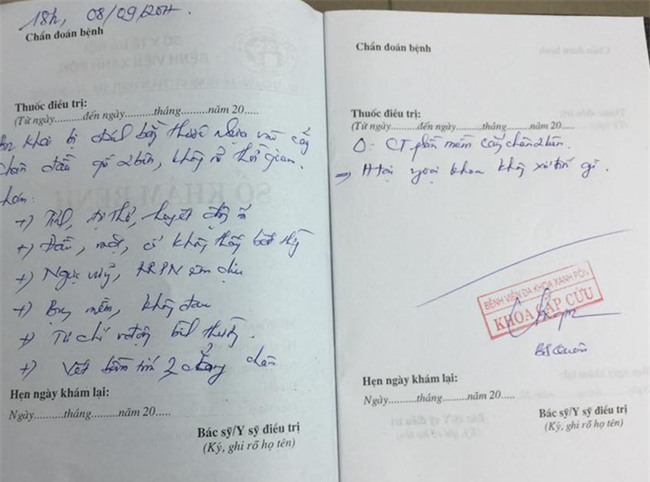 18h, 08/09/2017
Chẩn đoán bệnh
Thuốc điều trị:
(Từ ngày.........đến ngày.........tháng.........năm 20.....
BN khai bị đánh bằng thước nhựa vào cẳng
chân, đầu gối 2 bên, không rõ thời gian.
Khám:
+) Tỉnh, tự thở, huyết động ổn
+) Đầu, mặt, cổ không thấy bất thường
+) Ngực vững, RRPN êm dịu
+) Bụng mềm, không đau
+) Tứ chi vận động bình thường
+) Vết bầm tím 2 cẳng chân
Hẹn ngày khám lại:
Ngày.........tháng.........năm 20.....
Bác sỹ/Y sỹ điều trị
(Ký, ghi rõ họ tên)
Chẩn đoán bệnh
Thuốc điều trị:
(Từ ngày.........đến ngày.........tháng.........năm 20.....
Δ: CT phần mềm cẳng chân 2 bên.
=> Hiện tại ngoại khoa không xử trí gì.
BỆNH VIỆN ĐA KHOA XANH PÔN
KHOA CẤP CỨU
Hẹn ngày khám lại:
Ngày.........tháng.........năm 20.....
Bác sỹ/Y sỹ điều trị
(Ký, ghi rõ họ tên)